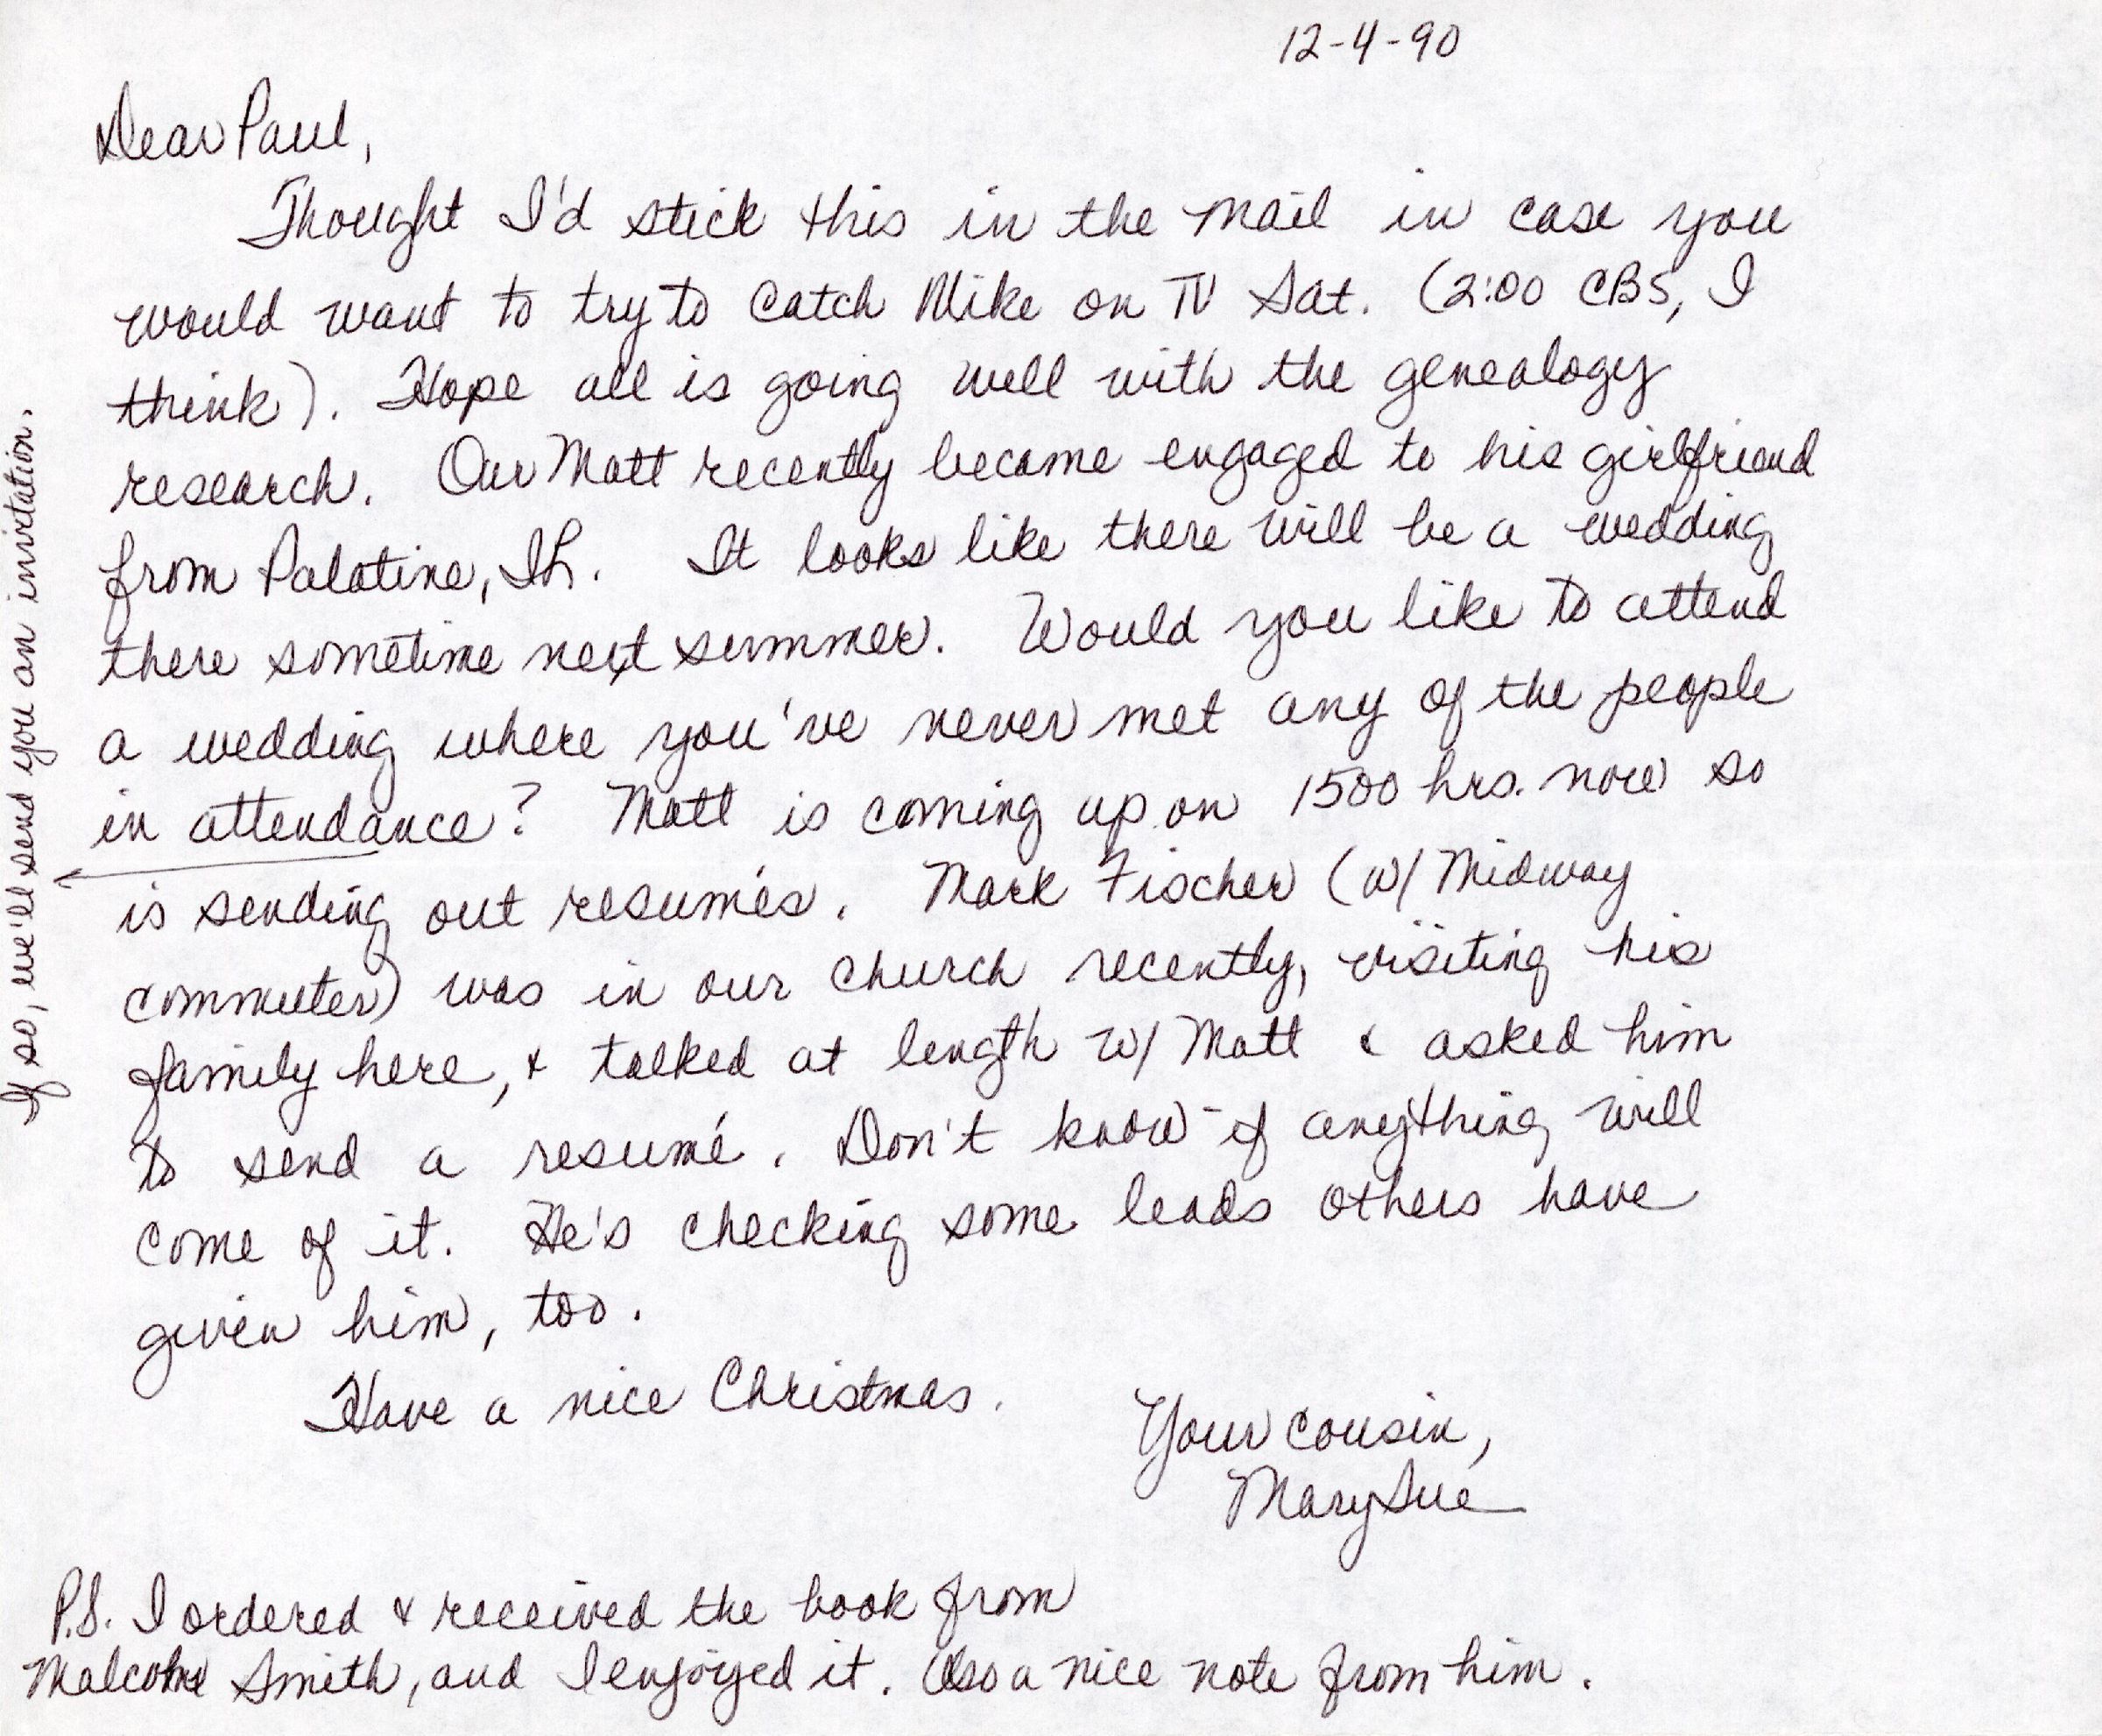 12-4-90
Dear Paul,
Thought I'd stick this in the mail in case you
would want to try to catch Mike on TV Sat. (2:00 CBS, I
think). Hope all is going well with the genealogy
research. Our Matt recently became engaged to his girlfriend
from Palatine, IL. It looks like there will be a wedding
there sometime next summer. Would you like to attend
a wedding where you've never met any of the people
in attendance? Matt is coming up on 1500 hrs. now so
is sending out resumés. Mark Fischer (w/ Midway
commuter) was in our church recently, visiting his
family here, & talked at length w/ Matt & asked him
to send a resumé. Don't know if anything will
come of it. He's checking some leads others have
given him, too.
Have a nice Christmas.
Your cousin,
Mary Sue
P.S. I ordered & received the book from
Malcolm Smith, and I enjoyed it. Also a nice note from him.
If so, we'll send you an invitation.